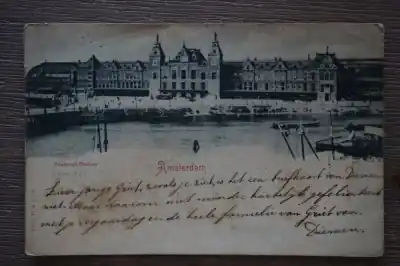 Centraal-Station
Amsterdam
Lieve jonge Griet, zooals je ziet, is het een briefkaart van Diemen
niet. Maar daarom niet minder hartelijk gefeliciteerd
met je verjaardag en de heele familie van Griet van
Diemen.